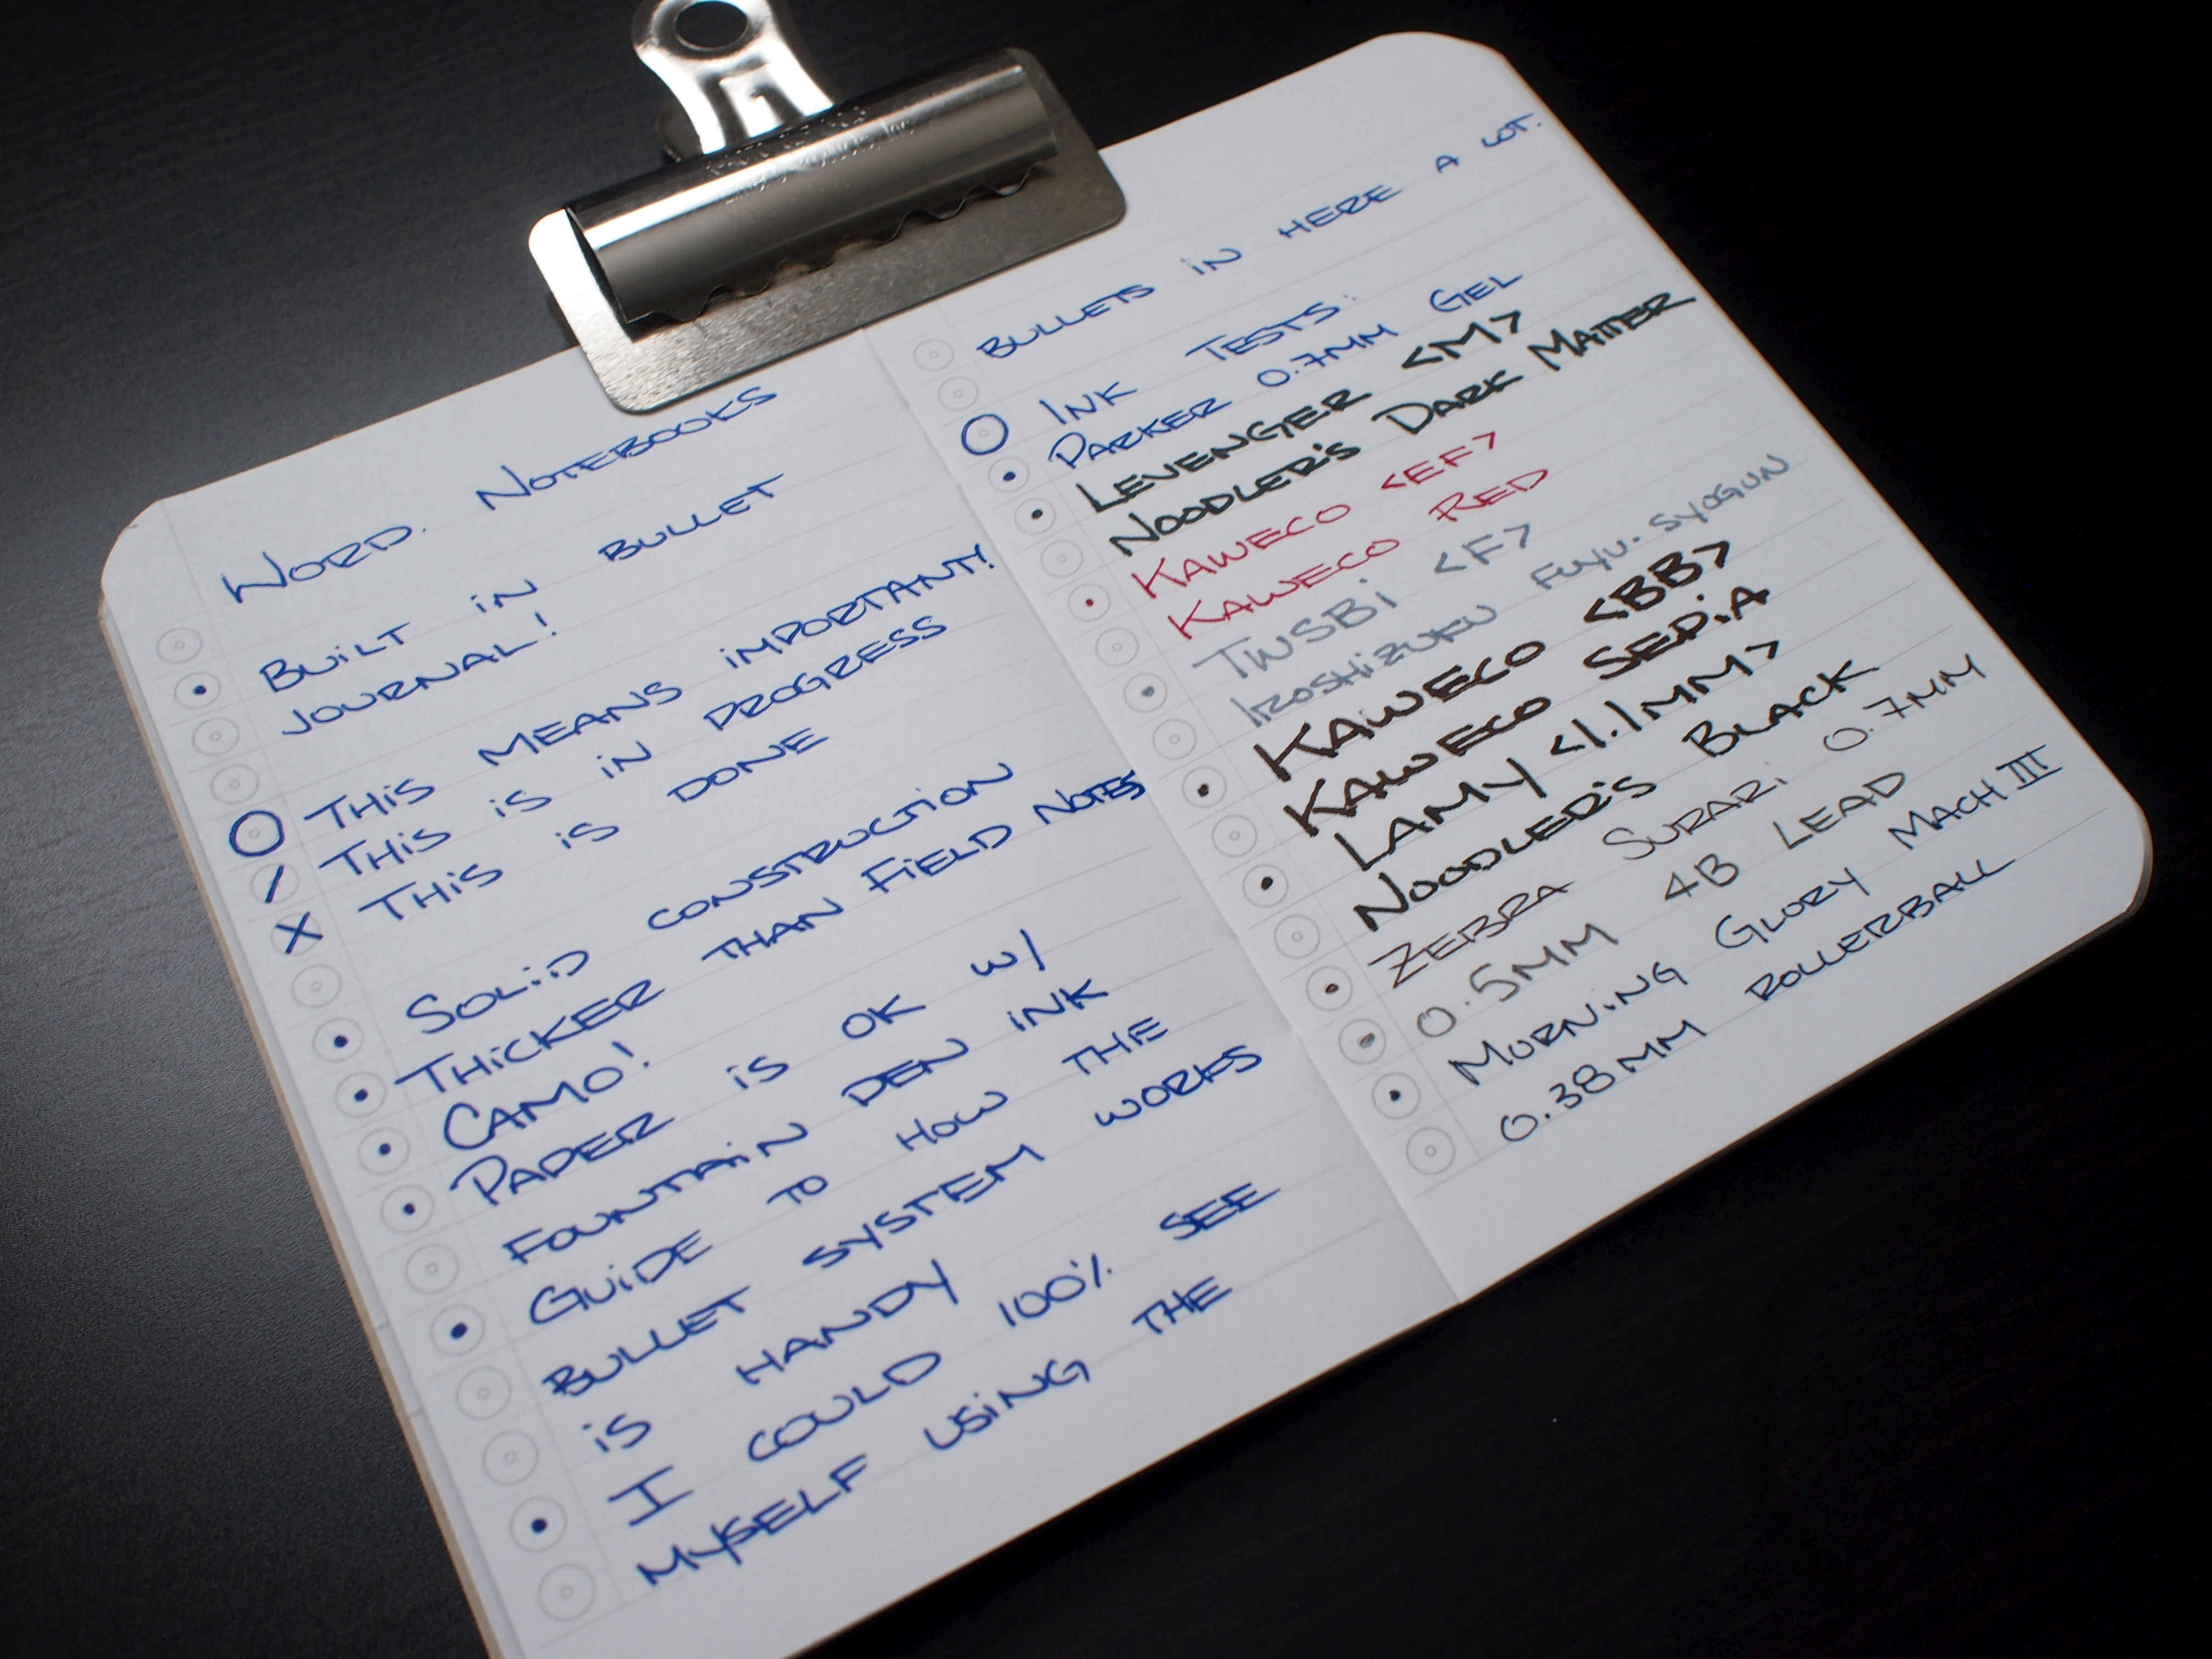 Word. Notebooks
Built in bullet
journal!
This means important!
This is in progress
This is done
Solid construction
Thicker than Field Notes
Camo!
Paper is ok w/
fountain pen ink
Guide to how the
bullet system works
is handy
I could 100% see
myself using the
bullets in here a lot.
Ink Tests:
Parker 0.7mm Gel
Levenger <M>
Noodler's Dark Matter
Kaweco <EF>
Kaweco Red
TWSBi <F>
Iroshizuku Fuyu-Syogun
Kaweco <BB>
Kaweco Sepia
Lamy <1.1mm>
Noodler's Black
Zebra Surari 0.7mm
0.5mm 4B Lead
Morning Glory Mach III
0.38mm rollerball